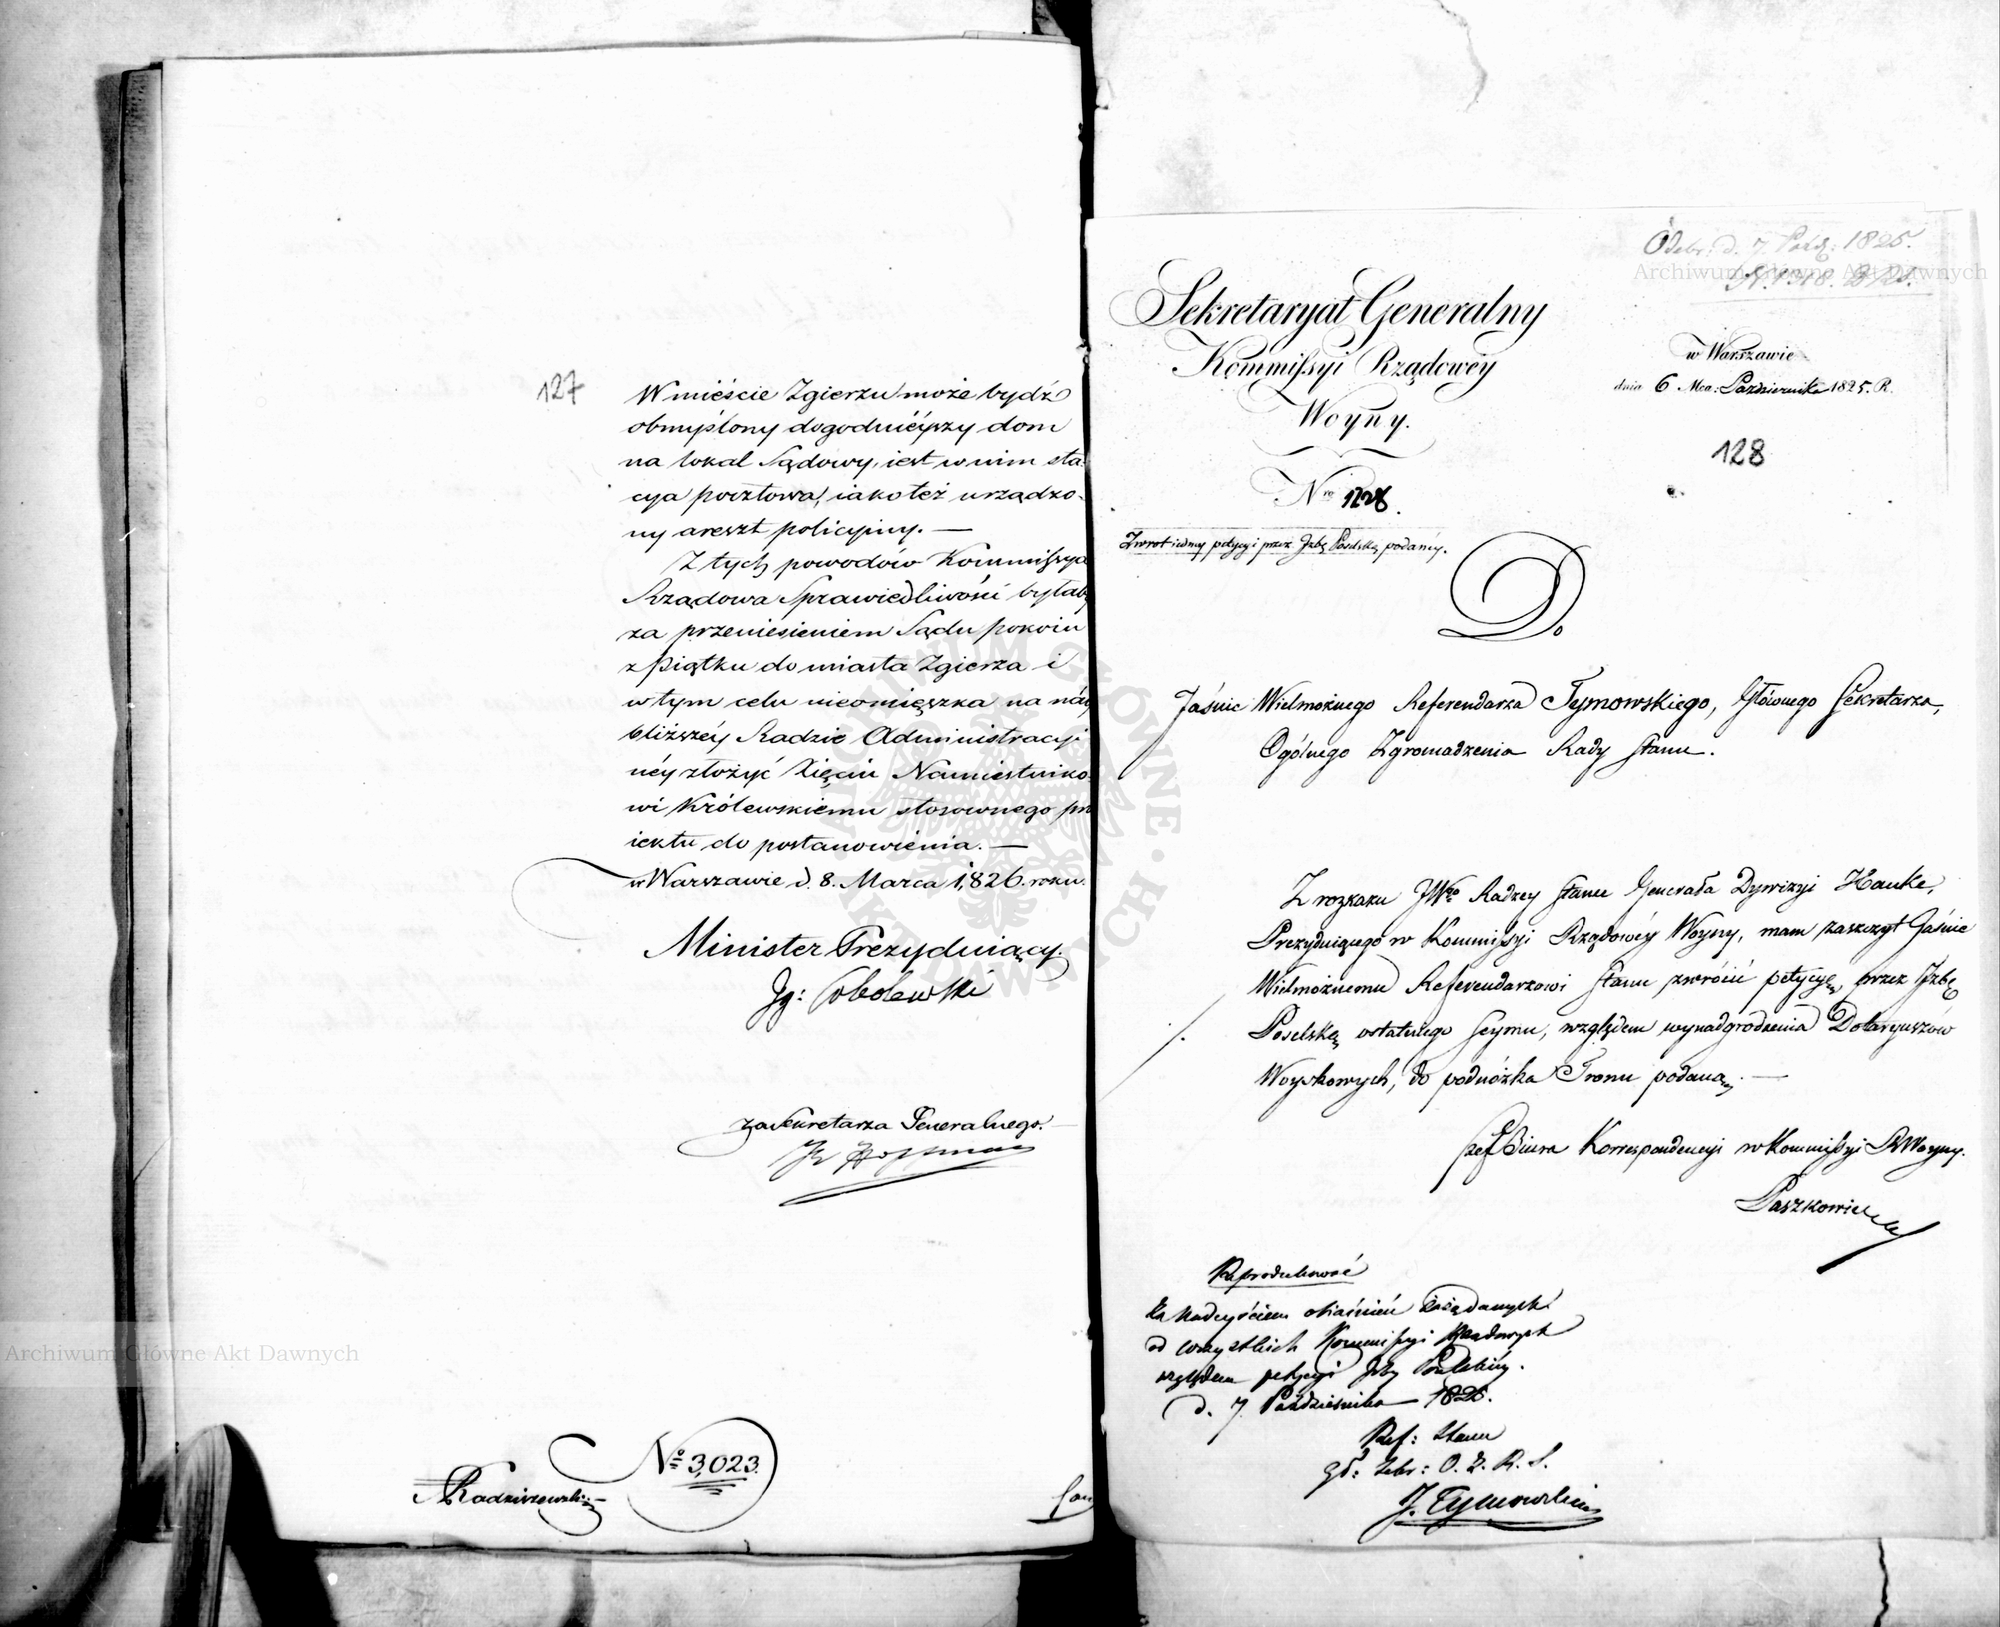 127
W mieście Zgierzu może bydź
obmyślony dogodniéyszy dom
na lokal Sądowy, iest w nim sta-
cya pocztowa, iako też urządzo-
ny areszt policyiny. —
Z tych powodów Kommissya
Rządowa Sprawiedliwości byłab
za przeniesieniem Sądu pokoiu
z Piątku do miasta Zgierza i
w tym celu nieomieszka na náy
bliższéy Radzie Administracyi
néy złożyć Xięciu Namiestniko-
wi Królewskiemu stosownego pro
iektu do postanowienia. —
w Warszawie d. 8. Marca 1,826. roku.
Minister Prezyduiący.
Ig: Sobolewski
za Sekretarza Generalnego.
Hoffman
No 3,023.
Radziszewski
Odebr: d. 7 Paźdz: 1825.
Sekretaryat Generalny
Kommissyi Rządowéy
Woyny.
w Warszawie
dnia 6 Mca: Października 1825. R.
128
Nro 1228.
Zwrot iedney petycyi przez Izbę Poselską podanéy.
Do
Jaśnie Wielmożnego Referendarza Tymowskiego, Głównego Sekretarza,
Ogólnego Zgromadzenia Rady Stanu.
Z rozkazu JWgo Radzcy Stanu Generała Dywizyi Hauke,
Prezyduiącego w Kommissyi Rządowéy Woyny, mam zaszczyt Jaśnie
Wielmożnemu Referendarzowi Stanu zwrócić petycyę, przez Izbę
Poselską ostatniego Seymu, względem wynadgrodzenia Dotaryuszów
Woyskowych, do podnóżka Tronu podaną. —
Szef Biura Korrespondencyi w Kommissyi R Woyny.
Paszkowicz
Reprodukować
za nadeyściem obiaśnień żądanych
od wszystkich Kommissyi Rządowych
względem petycyi Izby Poselskiéy.
d. 7 Października 1825.
Ref: Stanu
Gł: Sekr: O. Z. R. S.
J. Tymowski
Archiwum Główne Akt Dawnych
Archiwum Główne Akt Dawnych
ARCHIWUM GŁÓWNE AKT DAWNYCH